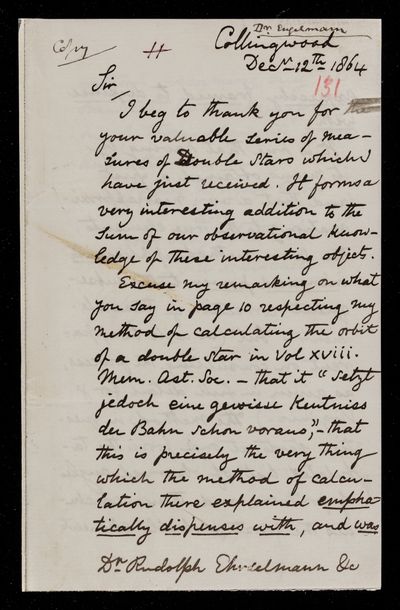 Dr. Engelmann
Copy
Collingwood
Decr. 12th 1864
131
Sir,
I beg to thank you for the
your valuable series of mea-
sures of Double Stars which I
have just received. It forms a
very interesting addition to the
sum of our observational know-
ledge of these interesting objects.
Excuse my remarking on what
you say in page 10 respecting my
method of calculating the orbit
of a double star in Vol XVIII.
Mem. Ast. Soc. – that it "setzt
jedoch eine gewisse Kentniss
der Bahn schon voraus", – that
this is precisely the very thing
which the method of calcu-
lation there explained empha-
tically dispenses with, and was
Dr. Rudolph Engelmann &c